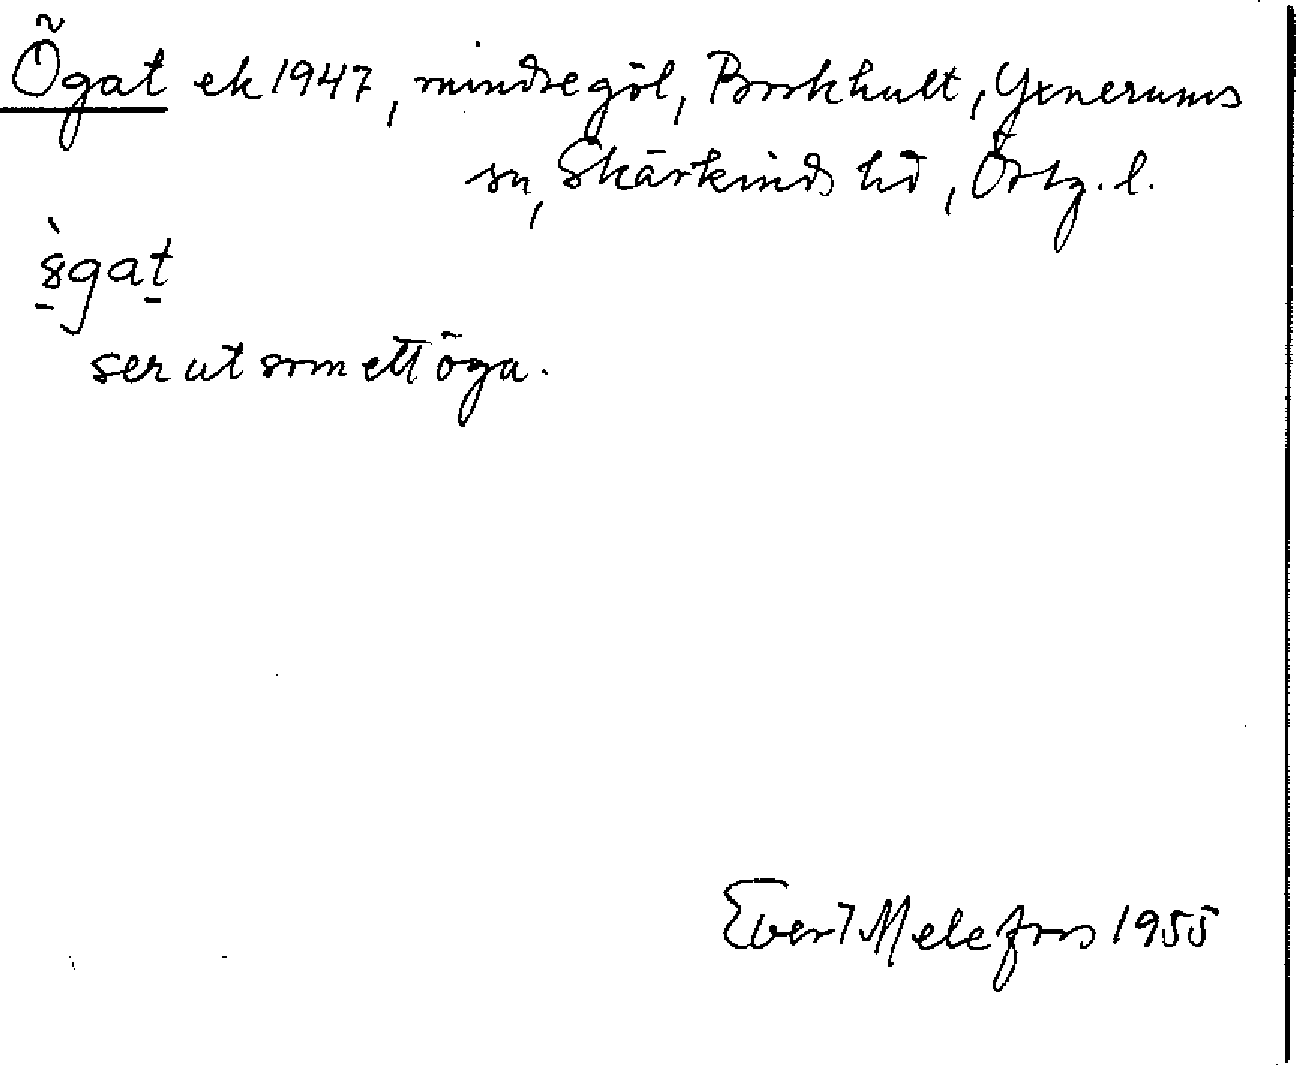 Ögat ek 1947, mindre göl, Borkhult, Yxnerums
sn, Skärkinds hd, Östg. l.
ser ut som ett öga.
Evert Melefors 1955